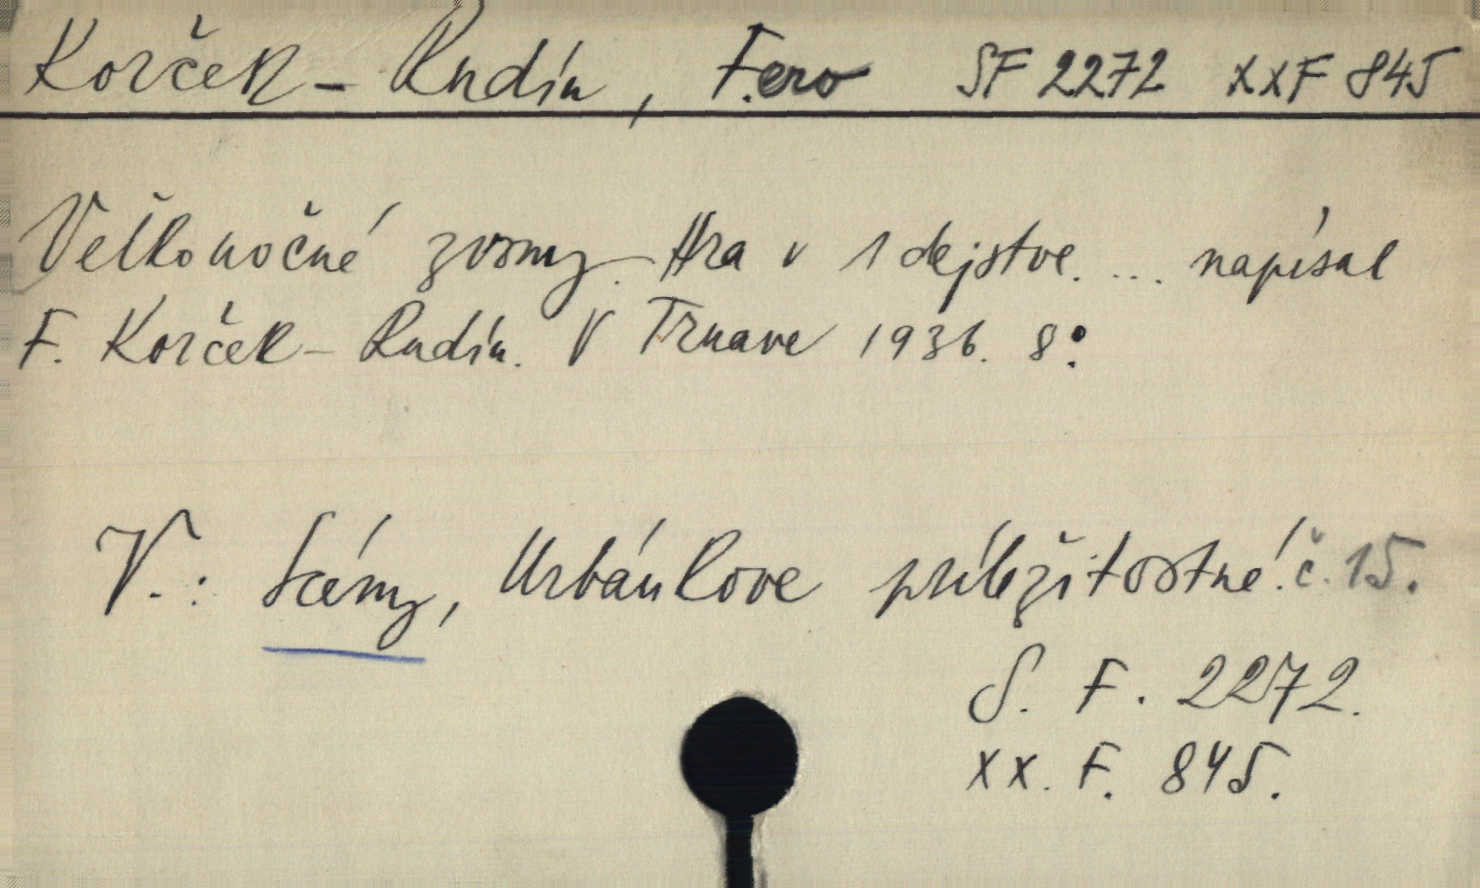 Korček-Rudín, Fero SF 2272 XXF 845
Veľkonočné zvony. Hra v 1 dejstve. ... napísal
F. Korček-Rudín. V Trnave 1936. 8°.
V.: Scény, Urbánkove príležitostné. č. 15.
S. F. 2272.
XX. F. 845.